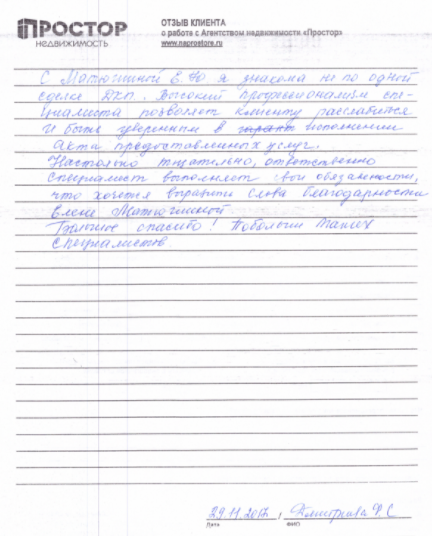 ПРОСТОР
НЕДВИЖИМОСТЬ
ОТЗЫВ КЛИЕНТА
о работе с Агентством недвижимости «Простор»
www.naprostore.ru
С Матюгиной Е.Ю я знакома не по одной
сделке ДКП. Высокий профессионализм спе-
циалиста позволяет клиенту расслабиться
и быть уверенным в исполнении
акта предоставленных услуг.
Настолько тщательно, ответственно
специалист выполняет свои обязанности,
что хочется выразить слова благодарности
Елене Матюгиной
Большое спасибо! Побольше таких
специалистов
29.11.2017, Дмитриева Ф. С
Дата ФИО